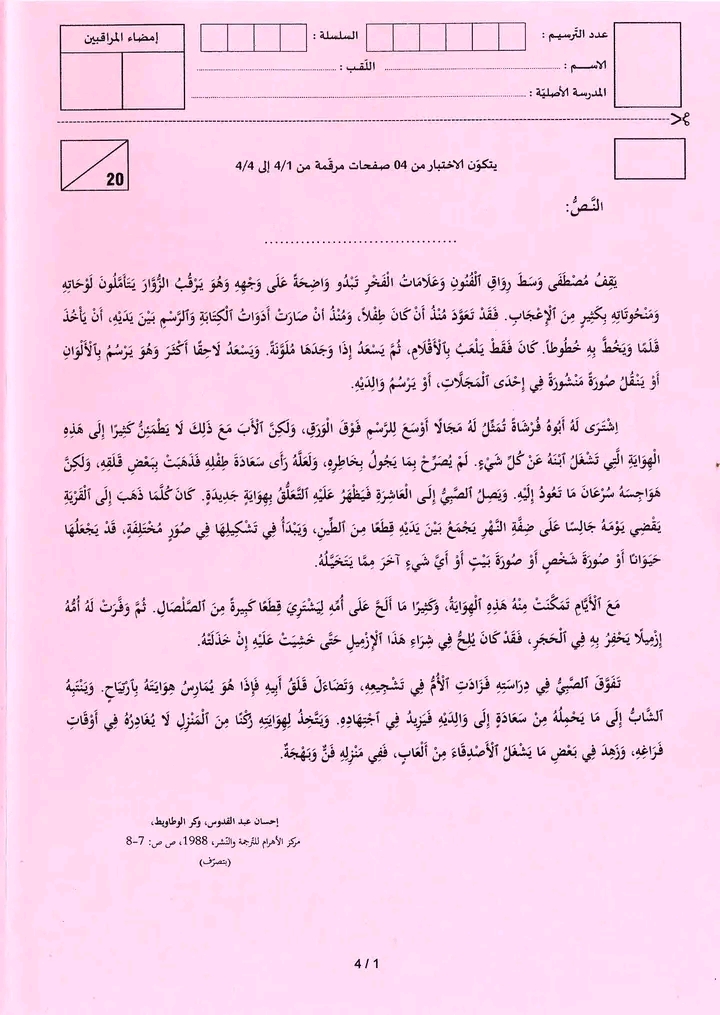 إمضاء المراقبين
السلسلة :
عدد الترسيم :
الاسـم : ........ اللقب : ........
المدرسة الأصليّة : ........
20
يتكوّن الاختبار من 04 صفحات مرقّمة من 4/1 إلى 4/4
النَّـصُّ:
..................................
يَقِفُ مُصْطَفَى وَسَطَ رِوَاقِ ٱلْفُنُونِ وَعَلَامَاتُ الْفَخْرِ تَبْدُو وَاضِحَةً عَلَى وَجْهِهِ وَهُوَ يَرْقُبُ الزُّوَّارَ يَتَأَمَّلُونَ لَوْحَاتِهِ
وَمَنْحُوتَاتِهِ بِكَثِيرٍ مِنَ ٱلْإِعْجَابِ. فَقَدْ تَعَوَّدَ مُنْذُ أَنْ كَانَ طِفْلًا، وَمُنْذُ أَنْ صَارَتْ أَدَوَاتُ ٱلْكِتَابَةِ وَٱلرَّسْمِ بَيْنَ يَدَيْهِ، أَنْ يَأْخُذَ
قَلَمًا وَيَخُطَّ بِهِ خُطُوطاً. كَانَ فَقَطْ يَلْعَبُ بِٱلْأَقْلَامِ، ثُمَّ يَسْعَدُ إِذَا وَجَدَهَا مُلَوَّنَةً. وَيَسْعَدُ لَاحِقًا أَكْثَرَ وَهُوَ يَرْسُمُ بِٱلْأَلْوَانِ
أَوْ يَنْقُلُ صُورَةً مَنْشُورَةً فِي إِحْدَى ٱلْمَجَلَّاتِ، أَوْ يَرْسُمُ وَالِدَيْهِ.
اِشْتَرَى لَهُ أَبُوهُ فُرْشَاةً تُمَثِّلُ لَهُ مَجَالًا أَوْسَعَ لِلرَّسْمِ فَوْقَ الْوَرَقِ، وَلَكِنَّ ٱلْأَبَ مَعَ ذَلِكَ لَا يَطْمَئِنُّ كَثِيرًا إِلَى هَذِهِ
الْهِوَايَةِ الَّتِي تَشْغَلُ ٱبْنَهُ عَنْ كُلِّ شَيْءٍ. لَمْ يُصَرِّحْ بِمَا يَجُولُ بِخَاطِرِهِ، وَلَعَلَّهُ رَأَى سَعَادَةَ طِفْلِهِ فَذَهَبَتْ بِبَعْضِ قَلَقِهِ، وَلَكِنَّ
هَوَاجِسَهُ سُرْعَانَ مَا تَعُودُ إِلَيْهِ. وَيَصِلُ ٱلصَّبِيُّ إِلَى ٱلْعَاشِرَةِ فَيَظْهَرُ عَلَيْهِ ٱلتَّعَلُّقُ بِهِوَايَةٍ جَدِيدَةٍ. كَانَ كُلَّمَا ذَهَبَ إِلَى ٱلْقَرْيَةِ
يَقْضِي يَوْمَهُ جَالِسًا عَلَى ضِفَّةِ النَّهْرِ يَجْمَعُ بَيْنَ يَدَيْهِ قِطَعًا مِنَ الطِّينِ، وَيَبْدَأُ فِي تَشْكِيلِهَا فِي صُوَرٍ مُخْتَلِفَةٍ، قَدْ يَجْعَلُهَا
حَيَوَانًا أَوْ صُورَةَ شَخْصٍ أَوْ صُورَةَ بَيْتٍ أَوْ أَيَّ شَيْءٍ آخَرَ مِمَّا يَتَخَيَّلُهُ.
مَعَ ٱلْأَيَّامِ تَمَكَّنَتْ مِنْهُ هَذِهِ ٱلْهِوَايَةُ، وَكَثِيرًا مَا أَلَحَّ عَلَى أُمِّهِ لِيَشْتَرِيَ قِطَعًا كَبِيرةً مِنَ الصَّلْصَالِ. ثُمَّ وَفَّرَتْ لَهُ أُمُّهُ
إِزْمِيلًا يَحْفِرُ بِهِ فِي ٱلْحَجَرِ، فَقَدْ كَانَ يُلِحُّ فِي شِرَاءِ هَذَا ٱلْإِزْمِيلِ حَتَّى خَشِيَتْ عَلَيْهِ إِنْ خَذَلَتْهُ.
تَفَوَّقَ الصَّبِيُّ فِي دِرَاسَتِهِ فَزَادَتِ ٱلْأُمُّ فِي تَشْجِيعِهِ، وَتَضَاءَلَ قَلَقُ أَبِيهِ فَإِذَا هُوَ يُمَارِسُ هِوَايَتَهُ بِٱرْتِيَاحٍ. وَيَنْتَبِهُ
ٱلشَّابُّ إِلَى مَا يَحْمِلُهُ مِنْ سَعَادَةٍ إِلَى وَالِدَيْهِ فَيَزِيدُ فِي ٱجْتِهَادِهِ. وَيَتَّخِذُ لِهِوَايَتِهِ رُكْنًا مِنَ ٱلْمَنْزِلِ لَا يُغَادِرُهُ فِي أَوْقَاتِ
فَرَاغِهِ، وَزَهِدَ فِي بَعْضِ مَا يَشْغَلُ ٱلْأَصْدِقَاءَ مِنْ أَلْعَابٍ، فَفِي مَنْزِلِهِ فَنٌّ وَبَهْجَةٌ.
إحسان عبد القدوس، وكر الوطاويط،
مركز الأهرام للتّرجمة والنّشر، 1988، ص ص: 7-8
(بتصرّف)
4 / 1